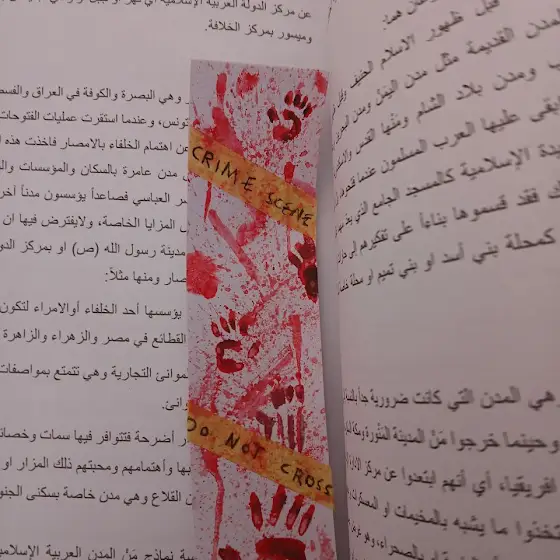 عن مركز الدولة العربية الإسلامية أي نهر أو
وميسور بمركز الخلافة.
وهي البصرة والكوفة في العراق والفسط
تونس، وعندما استقرت عمليات الفتوحات
عن اهتمام الخلفاء بالامصار فاخذت هذه
مدن عامرة بالسكان والمؤسسات وال
العباسي فصاعداً يؤسسون مدناً أخر
المزايا الخاصة، ولايفترض فيها ان
مدينة رسول الله (ص) او بمركز الدو
صار ومنها مثلاً:
يؤسسها أحد الخلفاء أوالامراء لتكون
القطائع في مصر والزهراء والزاهرة
موانئ التجارية وهي تتمتع بمواصفات
وانئ.
أضرحة فتتوافر فيها سمات وخصائ
بها وأهتمامهم ومحبتهم ذلك المزار او
ن القلاع وهي مدن خاصة بسكنى الجنو
نماذج مَنْ المدن العربية الإسلامي
CRIME SCENE
DO NOT CROSS
قبل ظهور الاسلام الحنيف
مدن القديمة مثل مدن اليمن ومدن
ومدن بلاد الشام ومنها القدس
عليها العرب المسلمون عندما
الإسلامية كالمسجد الجامع الذي
فقد قسموها بناءاً على تفكيرهم إلى
كمحلة بني أسد او بني تميم او محلة
هي المدن التي كانت ضرورية جداً
وحينما خرجوا مَنْ المدينة المنُورة ومكة
افريقياء أي أنهم ابتعدوا عن مركز
ما يشبه بالمخيمات او المعسكرات
بالصحراء، وهو